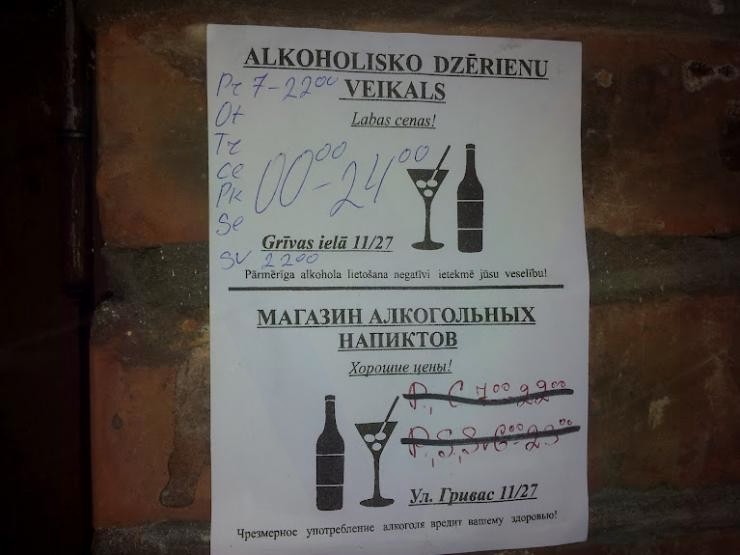 ALKOHOLISKO DZĒRIENU
VEIKALS
Pr 7-22⁰⁰
Labas cenas!
Ot
Tr
Ce
Pk
Se
00⁰⁰-24⁰⁰
Grīvas ielā 11/27
Sv 22⁰⁰
Pārmērīga alkohola lietošana negatīvi ietekmē jūsu veselību!
МАГАЗИН АЛКОГОЛЬНЫХ
НАПИКТОВ
Хорошие цены!
P., C 7⁰⁰-22⁰⁰
P.,S.,Sv 6⁰⁰-23⁰⁰
Ул. Гривас 11/27
Чрезмерное употребление алкоголя вредит вашему здоровью!